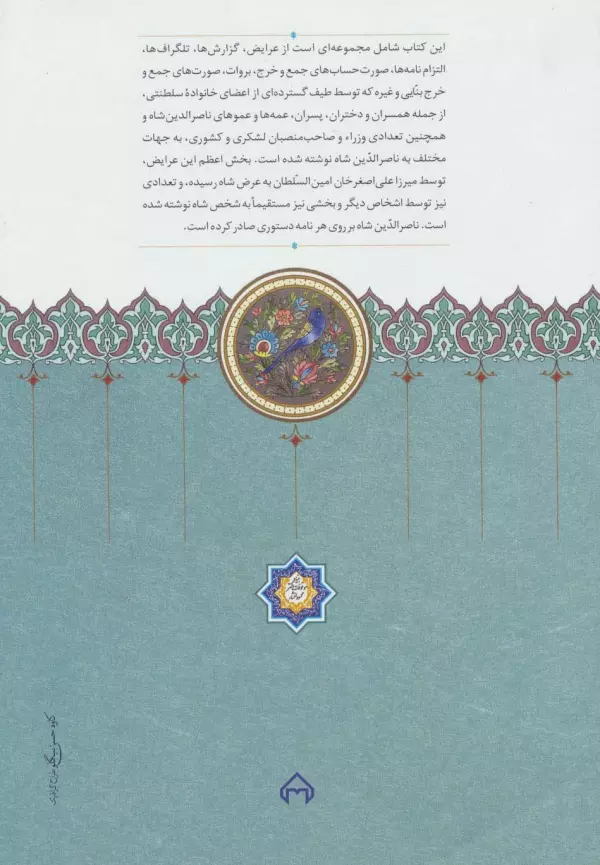 این کتاب شامل مجموعه‌ای است از عرایض، گزارش‌ها، تلگراف‌ها،
التزام نامه‌ها، صورت‌حساب‌های جمع و خرج، بروات، صورت‌های جمع و
خرج بنّایی و غیره که توسط طیف گسترده‌ای از اعضای خانوادهٔ سلطنتی،
از جمله همسران و دختران، پسران، عمه‌ها و عموهای ناصرالدین‌شاه و
همچنین تعدادی وزراء و صاحب‌منصبان لشکری و کشوری، به جهات
مختلف به ناصرالدّین شاه نوشته شده است. بخش اعظم این عرایض،
توسط میرزا علی‌اصغرخان امین‌السلّطان به عرض شاه رسیده، و تعدادی
نیز توسط اشخاص دیگر و بخشی نیز مستقیماً به شخص شاه نوشته شده
است. ناصرالدّین شاه بر روی هر نامه دستوری صادر کرده است.